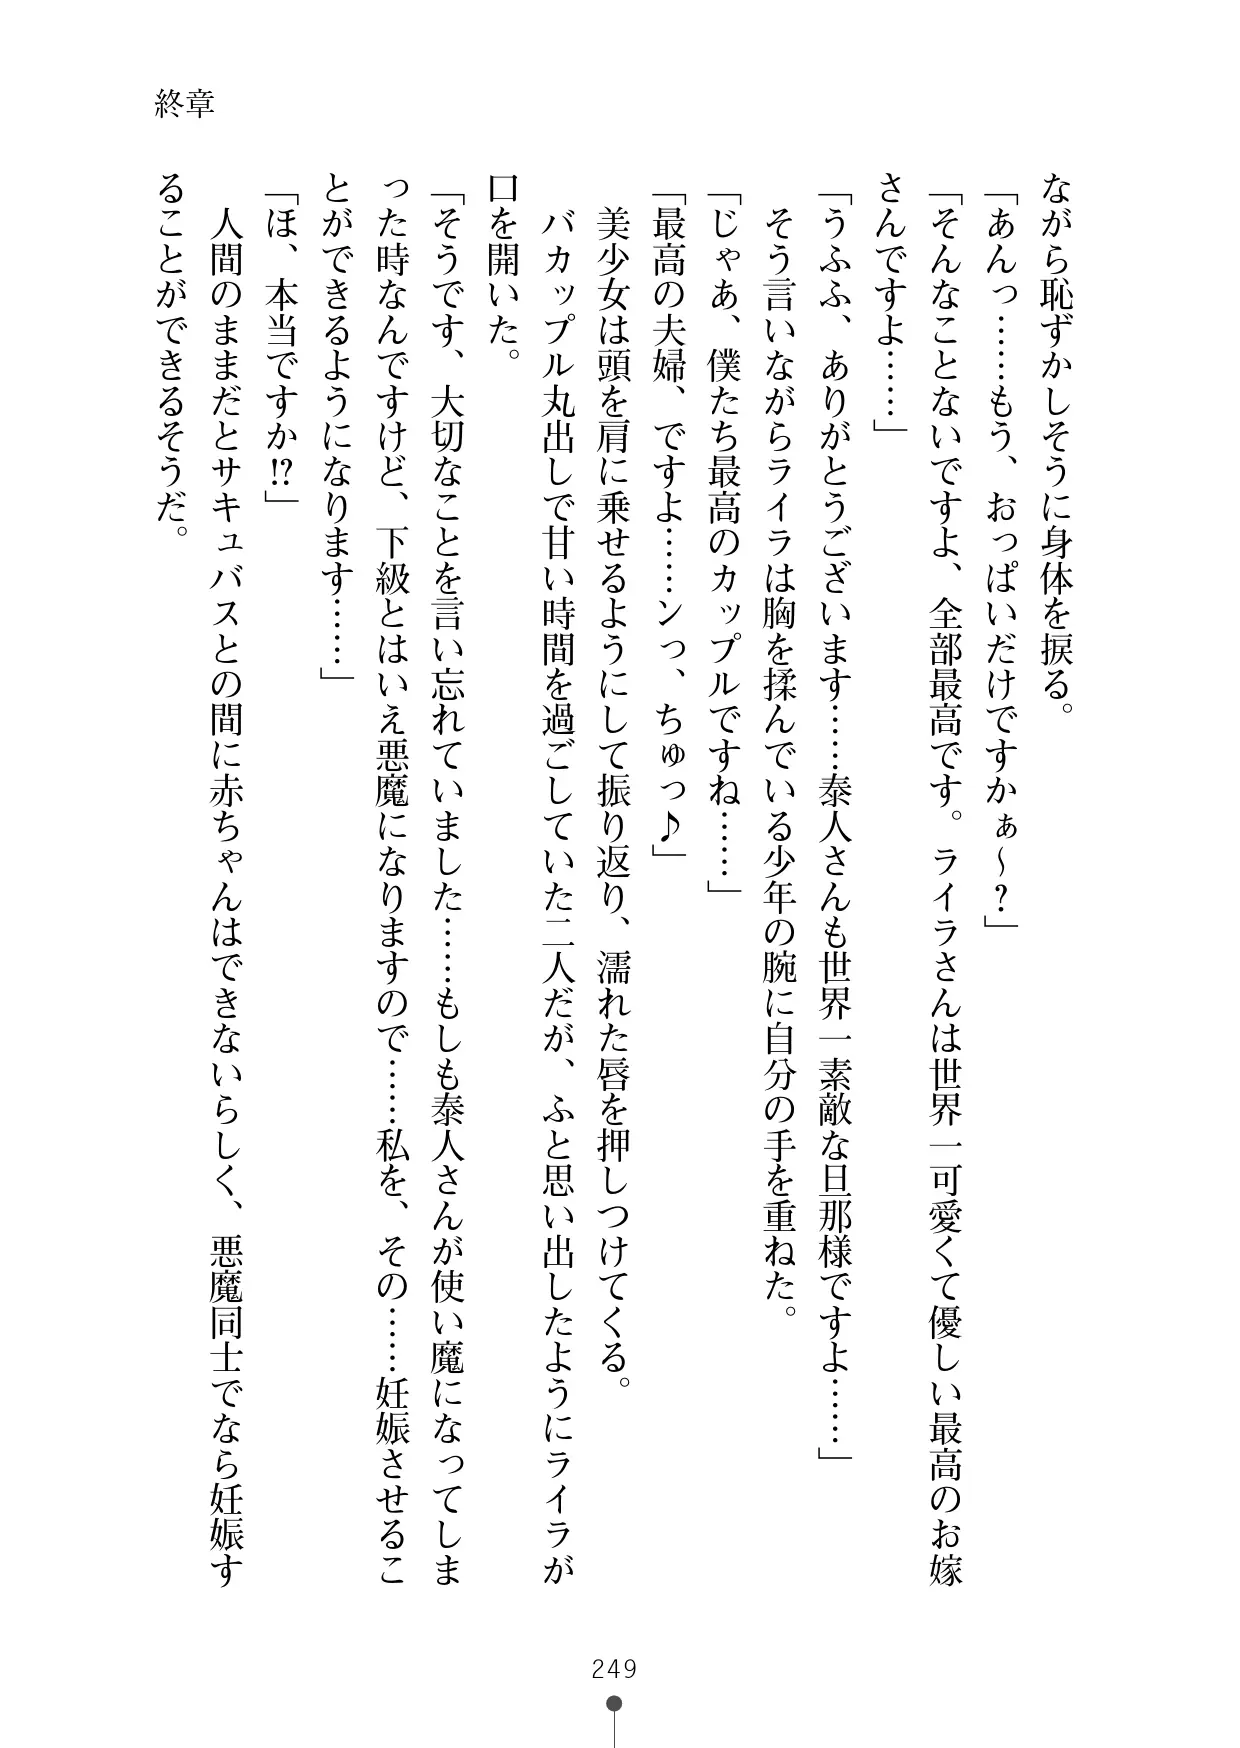 終章
ながら恥ずかしそうに身体を捩る。
「あんっ……もう、おっぱいだけですかぁ～？」
「そんなことないですよ、全部最高です。ライラさんは世界一可愛くて優しい最高のお嫁
さんですよ……」
「うふふ、ありがとうございます……泰人さんも世界一素敵な旦那様ですよ……」
そう言いながらライラは胸を揉んでいる少年の腕に自分の手を重ねた。
「じゃあ、僕たち最高のカップルですね……」
「最高の夫婦、ですよ……ンっ、ちゅっ♪」
美少女は頭を肩に乗せるようにして振り返り、濡れた唇を押しつけてくる。
バカップル丸出しで甘い時間を過ごしていた二人だが、ふと思い出したようにライラが
口を開いた。
「そうです、大切なことを言い忘れていました……もしも泰人さんが使い魔になってしま
った時なんですけど、下級とはいえ悪魔になりますので……私を、その……妊娠させるこ
とができるようになります……」
「ほ、本当ですか!?」
人間のままだとサキュバスとの間に赤ちゃんはできないらしく、悪魔同士でなら妊娠す
ることができるそうだ。
249